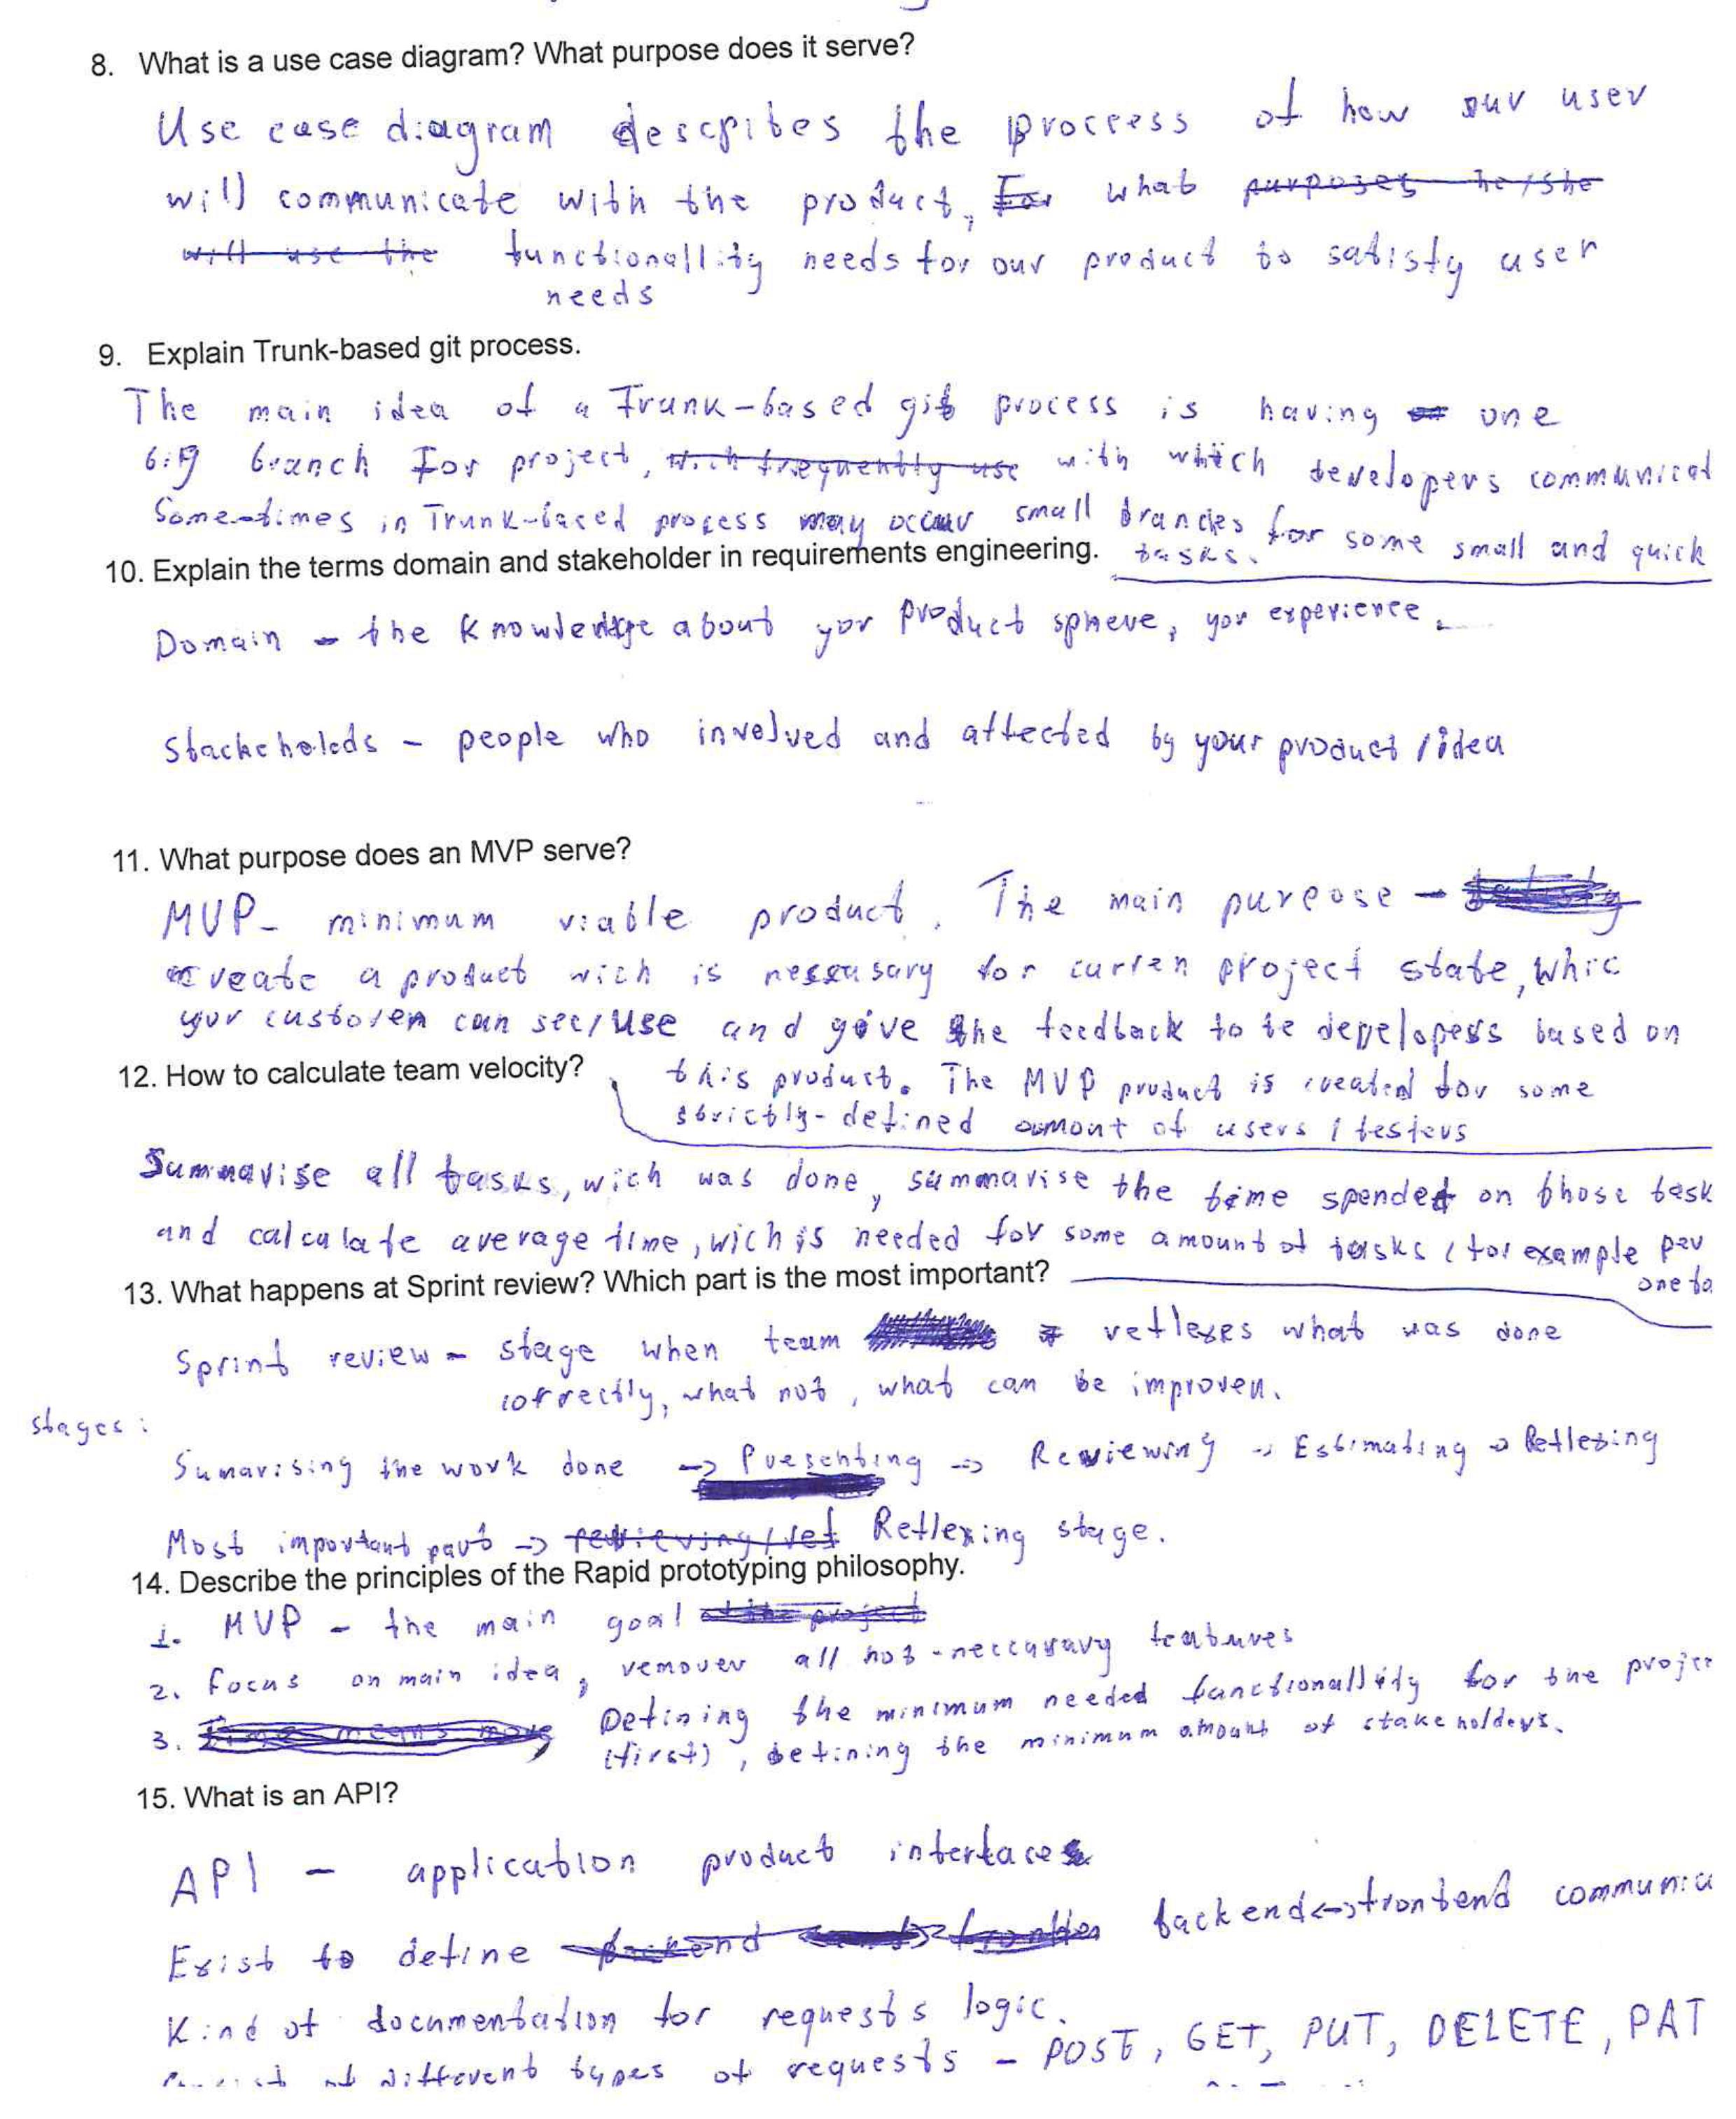 8. What is a use case diagram? What purpose does it serve?
Use case diagram describes the proccess of how our user
will communicate with the product, For what purposes he/she
will use the functionallity needs for our product to satisfy user
needs
9. Explain Trunk-based git process.
The main idea of a Trunk-based git process is having one
big branch for project, with frequently use with which developers communicat
Sometimes in Trunk-based process may occur small branches for some small and quick
10. Explain the terms domain and stakeholder in requirements engineering. tasks.
Domain - the knowledge about yor product sphere, yor experience.
Stackeholeds - people who involved and affected by your product / idea
11. What purpose does an MVP serve?
MVP - minimum viable product. The main purpose -
create a product wich is nessusary for curren project state, whic
your custoren can see/use and give the feedback to te developers based on
12. How to calculate team velocity? this product. The MVP product is created for some
strictly-defined aumont of users / testers
Summarise all tasks, wich was done, summarise the time spended on those task
and calculate average time, wich is needed for some amount of tasks (for example per
13. What happens at Sprint review? Which part is the most important? one ta
Sprint review - stage when team reflexes what was done
correctly, what not, what can be improven.
stages:
Sumarising the work done -> Presenting -> Rewiewing -> Estimating -> Reflexing
Most important part -> rewieving/ref Reflexing stage.
14. Describe the principles of the Rapid prototyping philosophy.
1. MVP - the main goal of the project
2. Focus on main idea, remover all not-neccarary features
3. Time means move Defining the minimum needed functionallity for the projec
(first), defining the minimum amount of stakeholders.
15. What is an API?
API - application product interfaces
Exist to define backend backend<->frontend communica
Kind of documentation for requests logic.
of different types of requests - POST, GET, PUT, DELETE, PAT